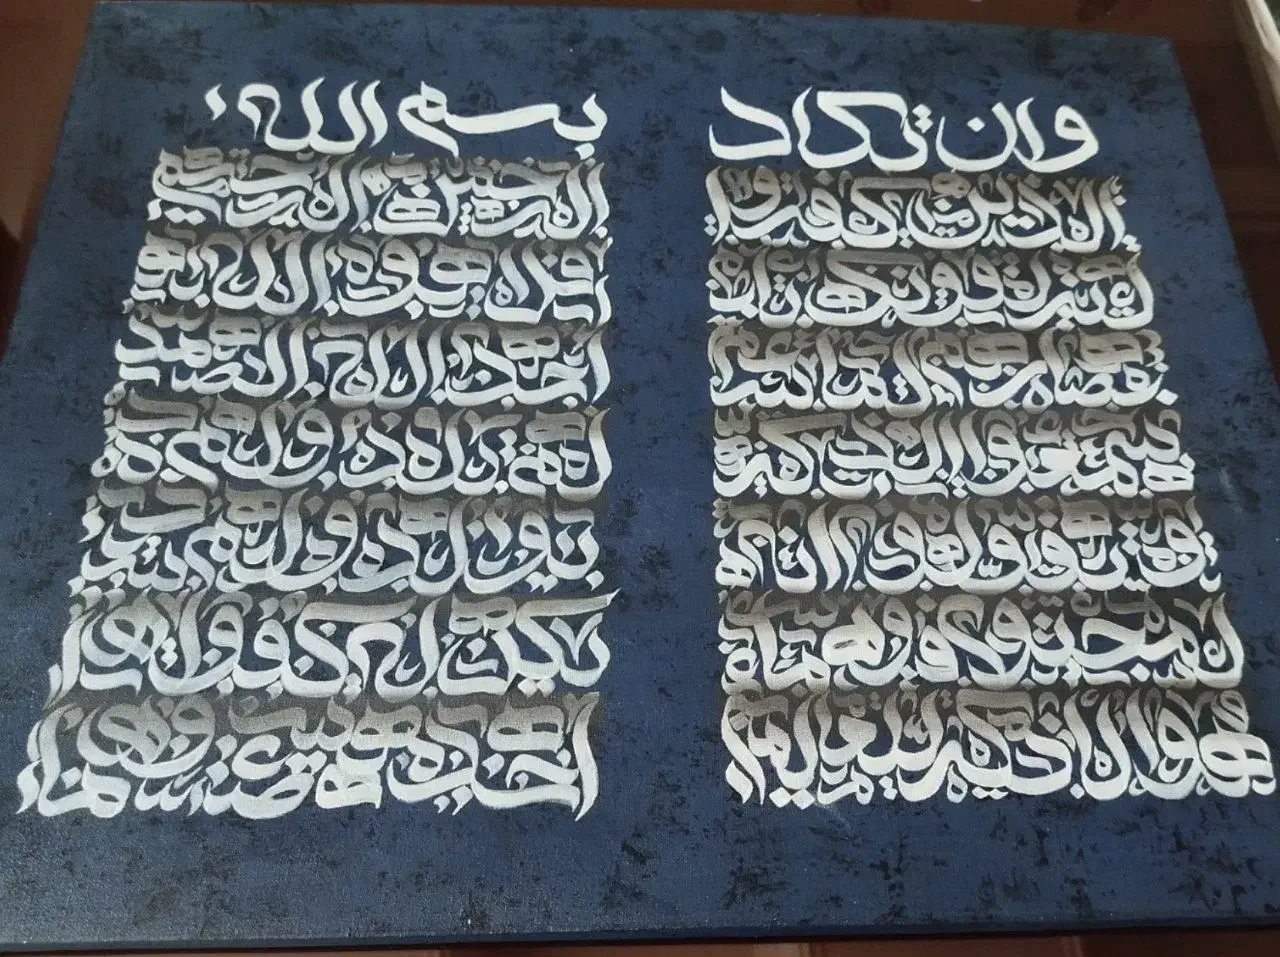 وان تکاد
الذین کفروا
لیزلقونک با
بصارهم لما
سمعوا الذکر
و یقولون انه
لمجنون و ما
هو الا ذکر للعالمین
بسم الله
الرحمن الرحیم
قل هو الله
احد الله الصمد
لم یلد ولم
یولد ولم
یکن له کفوا
احد